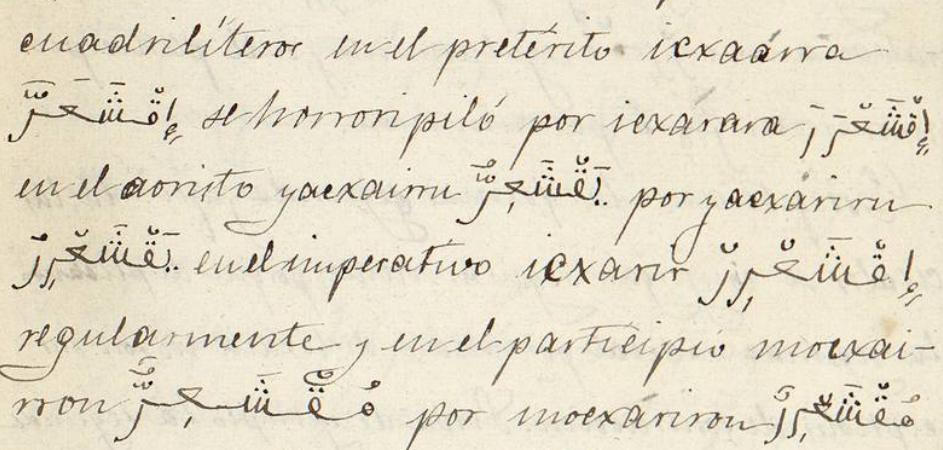 cuadrilíteros en el pretérito icxaárra
إِقْشَعَرَّ se horroripiló por icxárara إِقْشَعْرَرَ
en el aoristo yacxairru يَقْشَعِرُّ por yacxáriru
يَقْشَعْرِرُ en el imperativo icxarir إِقْشَعْرِرْ
regularmente y en el participio mocxai-
rron مُقْشَعِرٌّ por mocxáriron مُقْشَعْرِرٌ